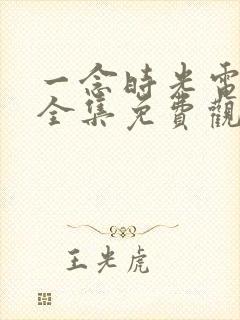 一念時光電
全集免費觀
王光虎